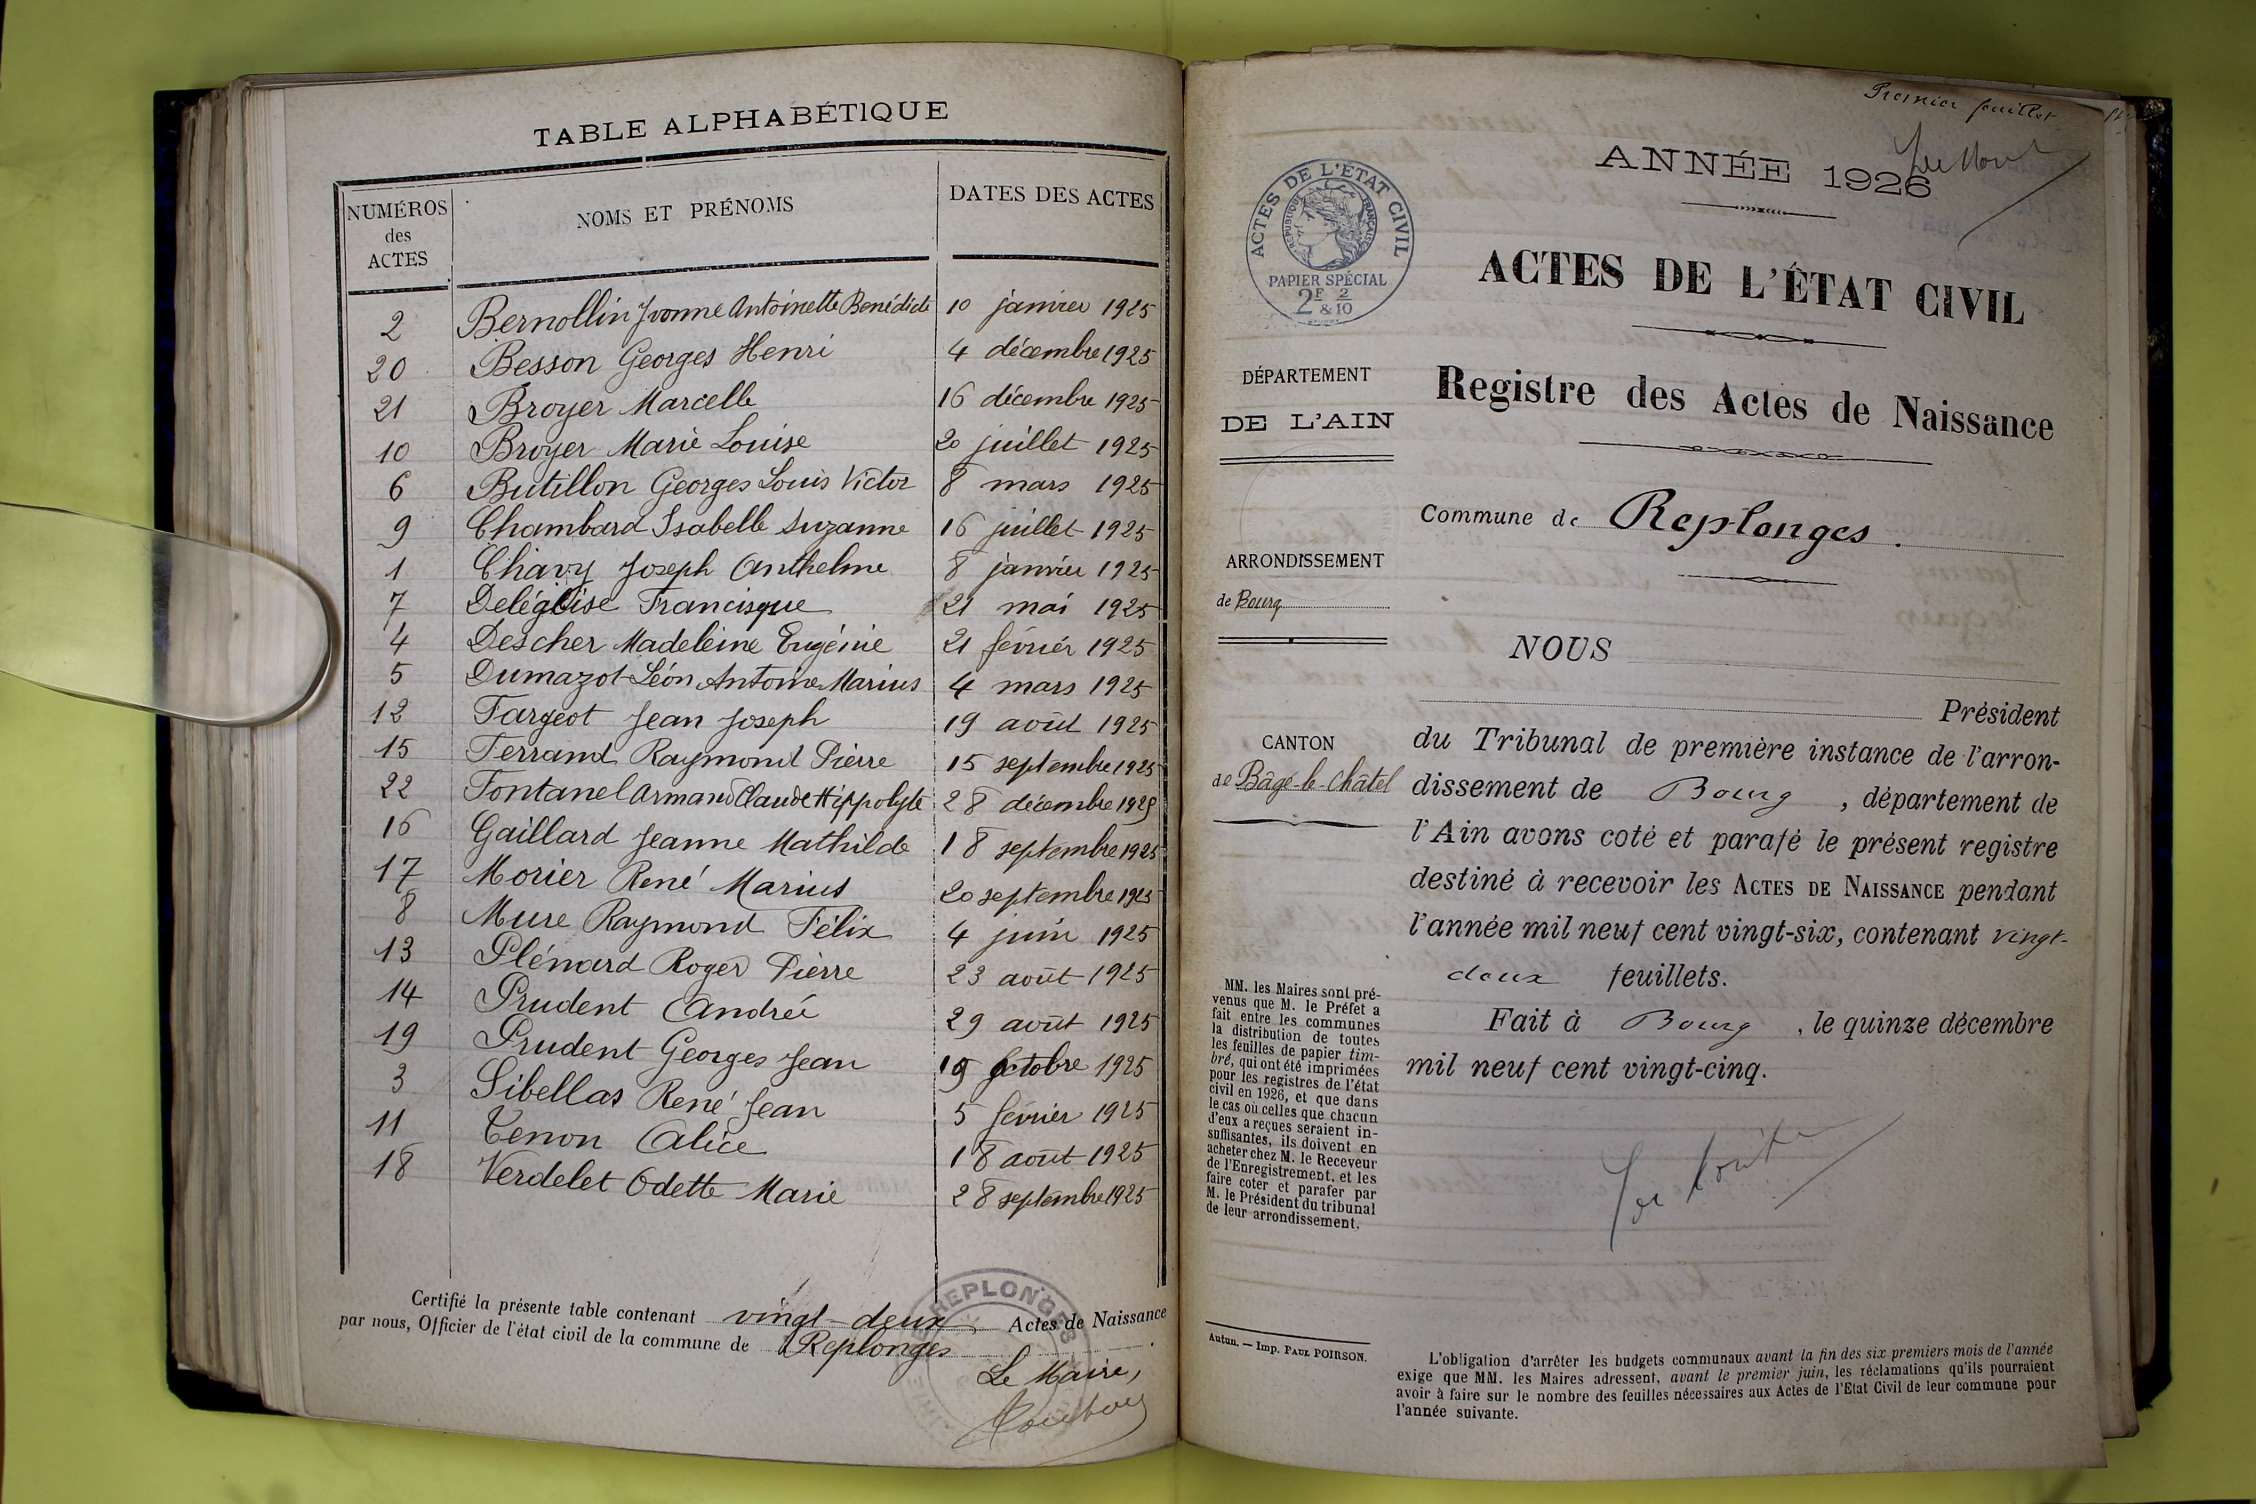 TABLE ALPHABÉTIQUE
NUMÉROS des ACTES NOMS ET PRÉNOMS DATES DES ACTES
2 Bernollin Yvonne Antoinette Bénédicte 10 janvier 1925
20 Besson Georges Henri 4 décembre 1925
21 Broyer Marcelle 16 décembre 1925
10 Broyer Marie Louise 20 juillet 1925
6 Butillon Georges Louis Victor 8 mars 1925
9 Chambard Isabelle Suzanne 16 juillet 1925
1 Chavy Joseph Anthelme 8 janvier 1925
7 Deléglise Francisque 21 mai 1925
4 Descher Madeleine Eugénie 21 février 1925
5 Dumazot Léon Antoine Marius 4 mars 1925
12 Fargeot Jean Joseph 19 août 1925
15 Ferrand Raymond Pierre 15 septembre 1925
22 Fontanel Armand Claude Hippolyte 28 décembre 1925
16 Gaillard Jeanne Mathilde 18 septembre 1925
17 Morier René Marius 20 septembre 1925
8 Mure Raymond Félix 4 juin 1925
13 Plénard Roger Pierre 23 août 1925
14 Prudent Andrée 29 août 1925
19 Prudent Georges Jean octobre 1925
3 Sibellas René Jean 5 février 1925
11 Tenon Alice 18 août 1925
18 Verdelet Odette Marie 28 septembre 1925
Certifié la présente table contenant vingt-deux Actes de Naissance
par nous, Officier de l'état civil de la commune de Replonges
REPLONGES
Le Maire,
Premier feuillet
ANNÉE 1926
ACTES DE L'ÉTAT CIVIL
RÉPUBLIQUE FRANÇAISE
PAPIER SPÉCIAL
2F 2/10
&
ACTES DE L'ÉTAT CIVIL
Registre des Actes de Naissance
Commune de Replonges.
DÉPARTEMENT
DE L'AIN
ARRONDISSEMENT
de Bourg
CANTON
de Bâgé-le-Châtel
NOUS
Président
du Tribunal de première instance de l'arron-
dissement de Bourg, département de
l'Ain avons coté et parafé le présent registre
destiné à recevoir les ACTES DE NAISSANCE pendant
l'année mil neuf cent vingt-six, contenant vingt-
deux feuillets.
Fait à Bourg, le quinze décembre
mil neuf cent vingt-cinq.
MM. les Maires sont pré-
venus que M. le Préfet a
fait entre les communes
la distribution de toutes
les feuilles de papier tim-
bré, qui ont été imprimées
pour les registres de l'état
civil en 1926, et que dans
le cas où celles que chacun
d'eux a reçues seraient in-
suffisantes, ils doivent en
acheter chez M. le Receveur
de l'Enregistrement, et les
faire coter et parafer par
M. le Président du tribunal
de leur arrondissement.
Autun. — Imp. PAUL POIRSON.
L'obligation d'arrêter les budgets communaux avant la fin des six premiers mois de l'année
exige que MM. les Maires adressent, avant le premier juin, les réclamations qu'ils pourraient
avoir à faire sur le nombre des feuilles nécessaires aux Actes de l'Etat Civil de leur commune pour
l'année suivante.